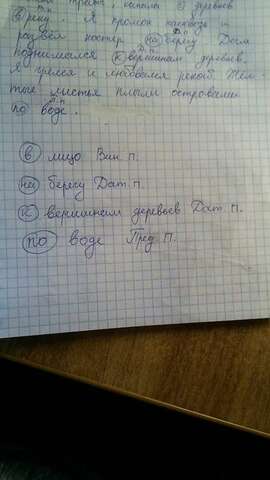 капали с деревьев
в реку. Я промок насквозь и
развёл костёр на берегу. Дым
поднимался к вершинам деревьев.
Я грелся и любовался рекой. Жёл-
тые листья плыли островами
по воде.
в лицо Вин. п.
на берегу Дат. п.
к вершинам деревьев Дат. п.
по воде Пред. п.